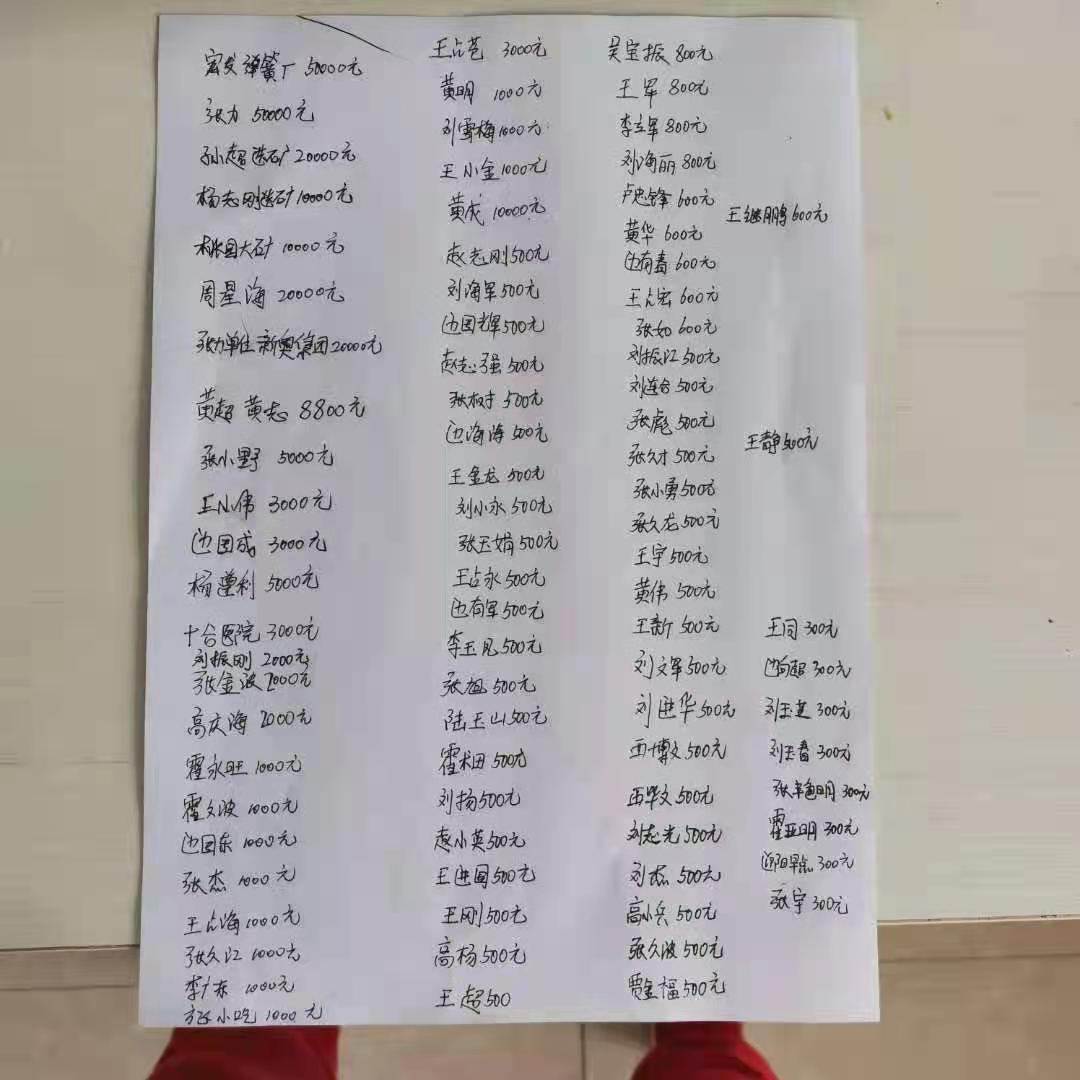 宏发弹簧厂 50000元
张力 50000元
孙超选矿 20000元
杨志刚选矿 10000元
桃园大矿 10000元
周星海 20000元
张力单位新奥集团 20000元
黄超 黄志 8800元
张小野 5000元
王小伟 3000元
边国成 3000元
杨遵利 5000元
十合医院 3000元
刘振刚 2000元
张金波 2000元
高庆海 2000元
霍永旺 1000元
霍久波 1000元
边国东 1000元
张杰 1000元
王占海 1000元
张久江 1000元
李广东 1000元
张小吃 1000元
王占苍 3000元
黄明 1000元
刘雪梅 1000元
王小金 1000元
黄成 10000元
赵志刚 500元
刘海军 500元
边国辉 500元
赵志强 500元
张树才 500元
边海涛 500元
王金龙 500元
刘小永 500元
张玉娟 500元
王占永 500元
边有军 500元
李玉凡 500元
张旭 500元
陆玉山 500元
霍术田 500元
刘扬 500元
赵小英 500元
王进国 500元
王刚 500元
高杨 500元
王超 500
吴宝振 800元
王军 800元
李立军 800元
刘海丽 800元
卢忠锋 600元
黄华 600元
边有春 600元
王占宏 600元
张如 600元
刘振江 500元
刘连合 500元
张彪 500元
张久才 500元
张小勇 500元
张久龙 500元
王宇 500元
黄伟 500元
王新 500元
刘文军 500元
刘进华 500元
西博文 500元
西毕文 500元
刘志光 500元
刘杰 500元
高小兵 500元
张久波 500元
贾金福 500元
王继鹏 600元
王静 500元
王同 300元
边向超 300元
刘玉莲 300元
刘玉春 300元
张艳明 300元
霍亚明 300元
朝阳早点 300元
张宇 300元